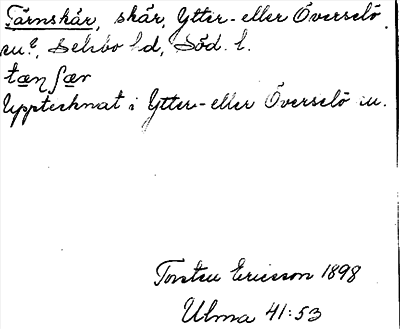 Tärnskär, skär, Ytter- eller Överselö
sn?, Selebo hd, Söd. l.
tæɳʃær
Upptecknat i Ytter- eller Överselö sn.
Torsten Ericsson 1898
Ulma 41:53